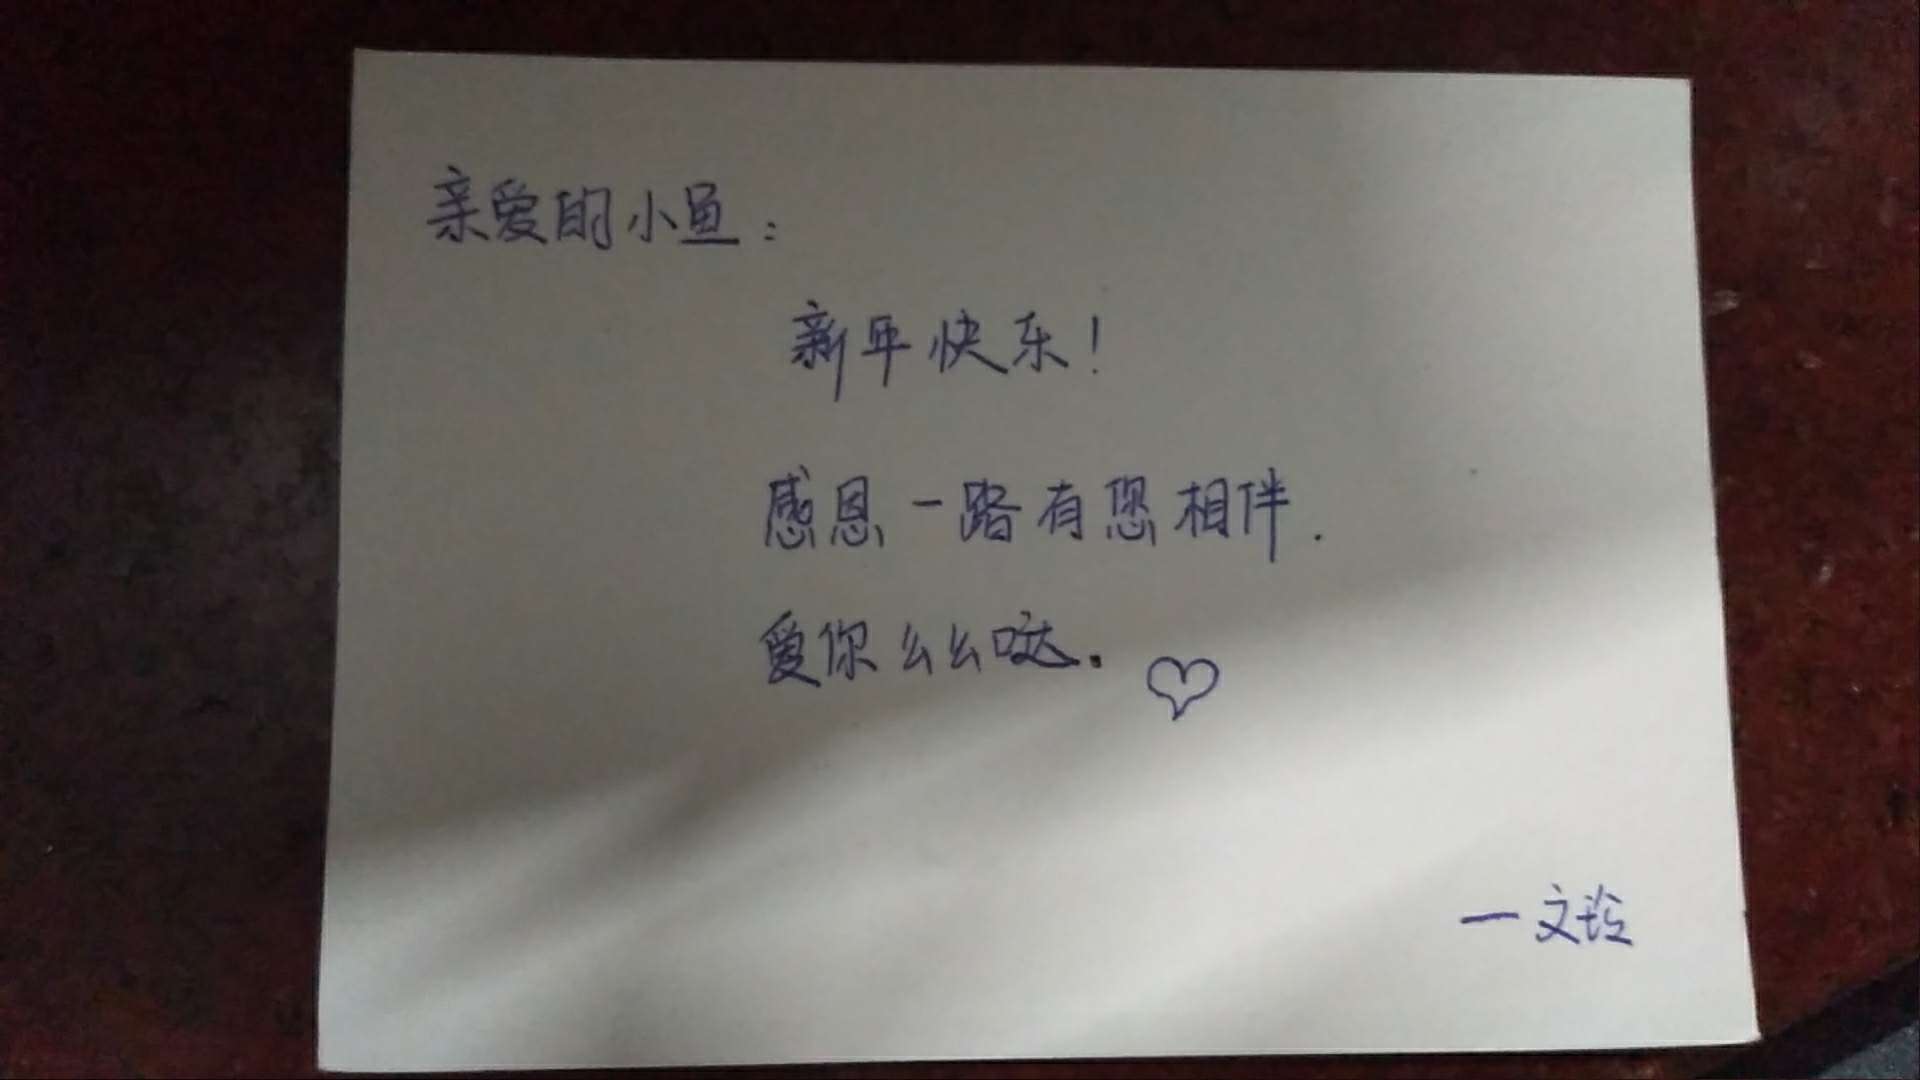 亲爱的小鱼：
新年快乐！
感恩一路有您相伴.
爱你么么哒.
一文玲